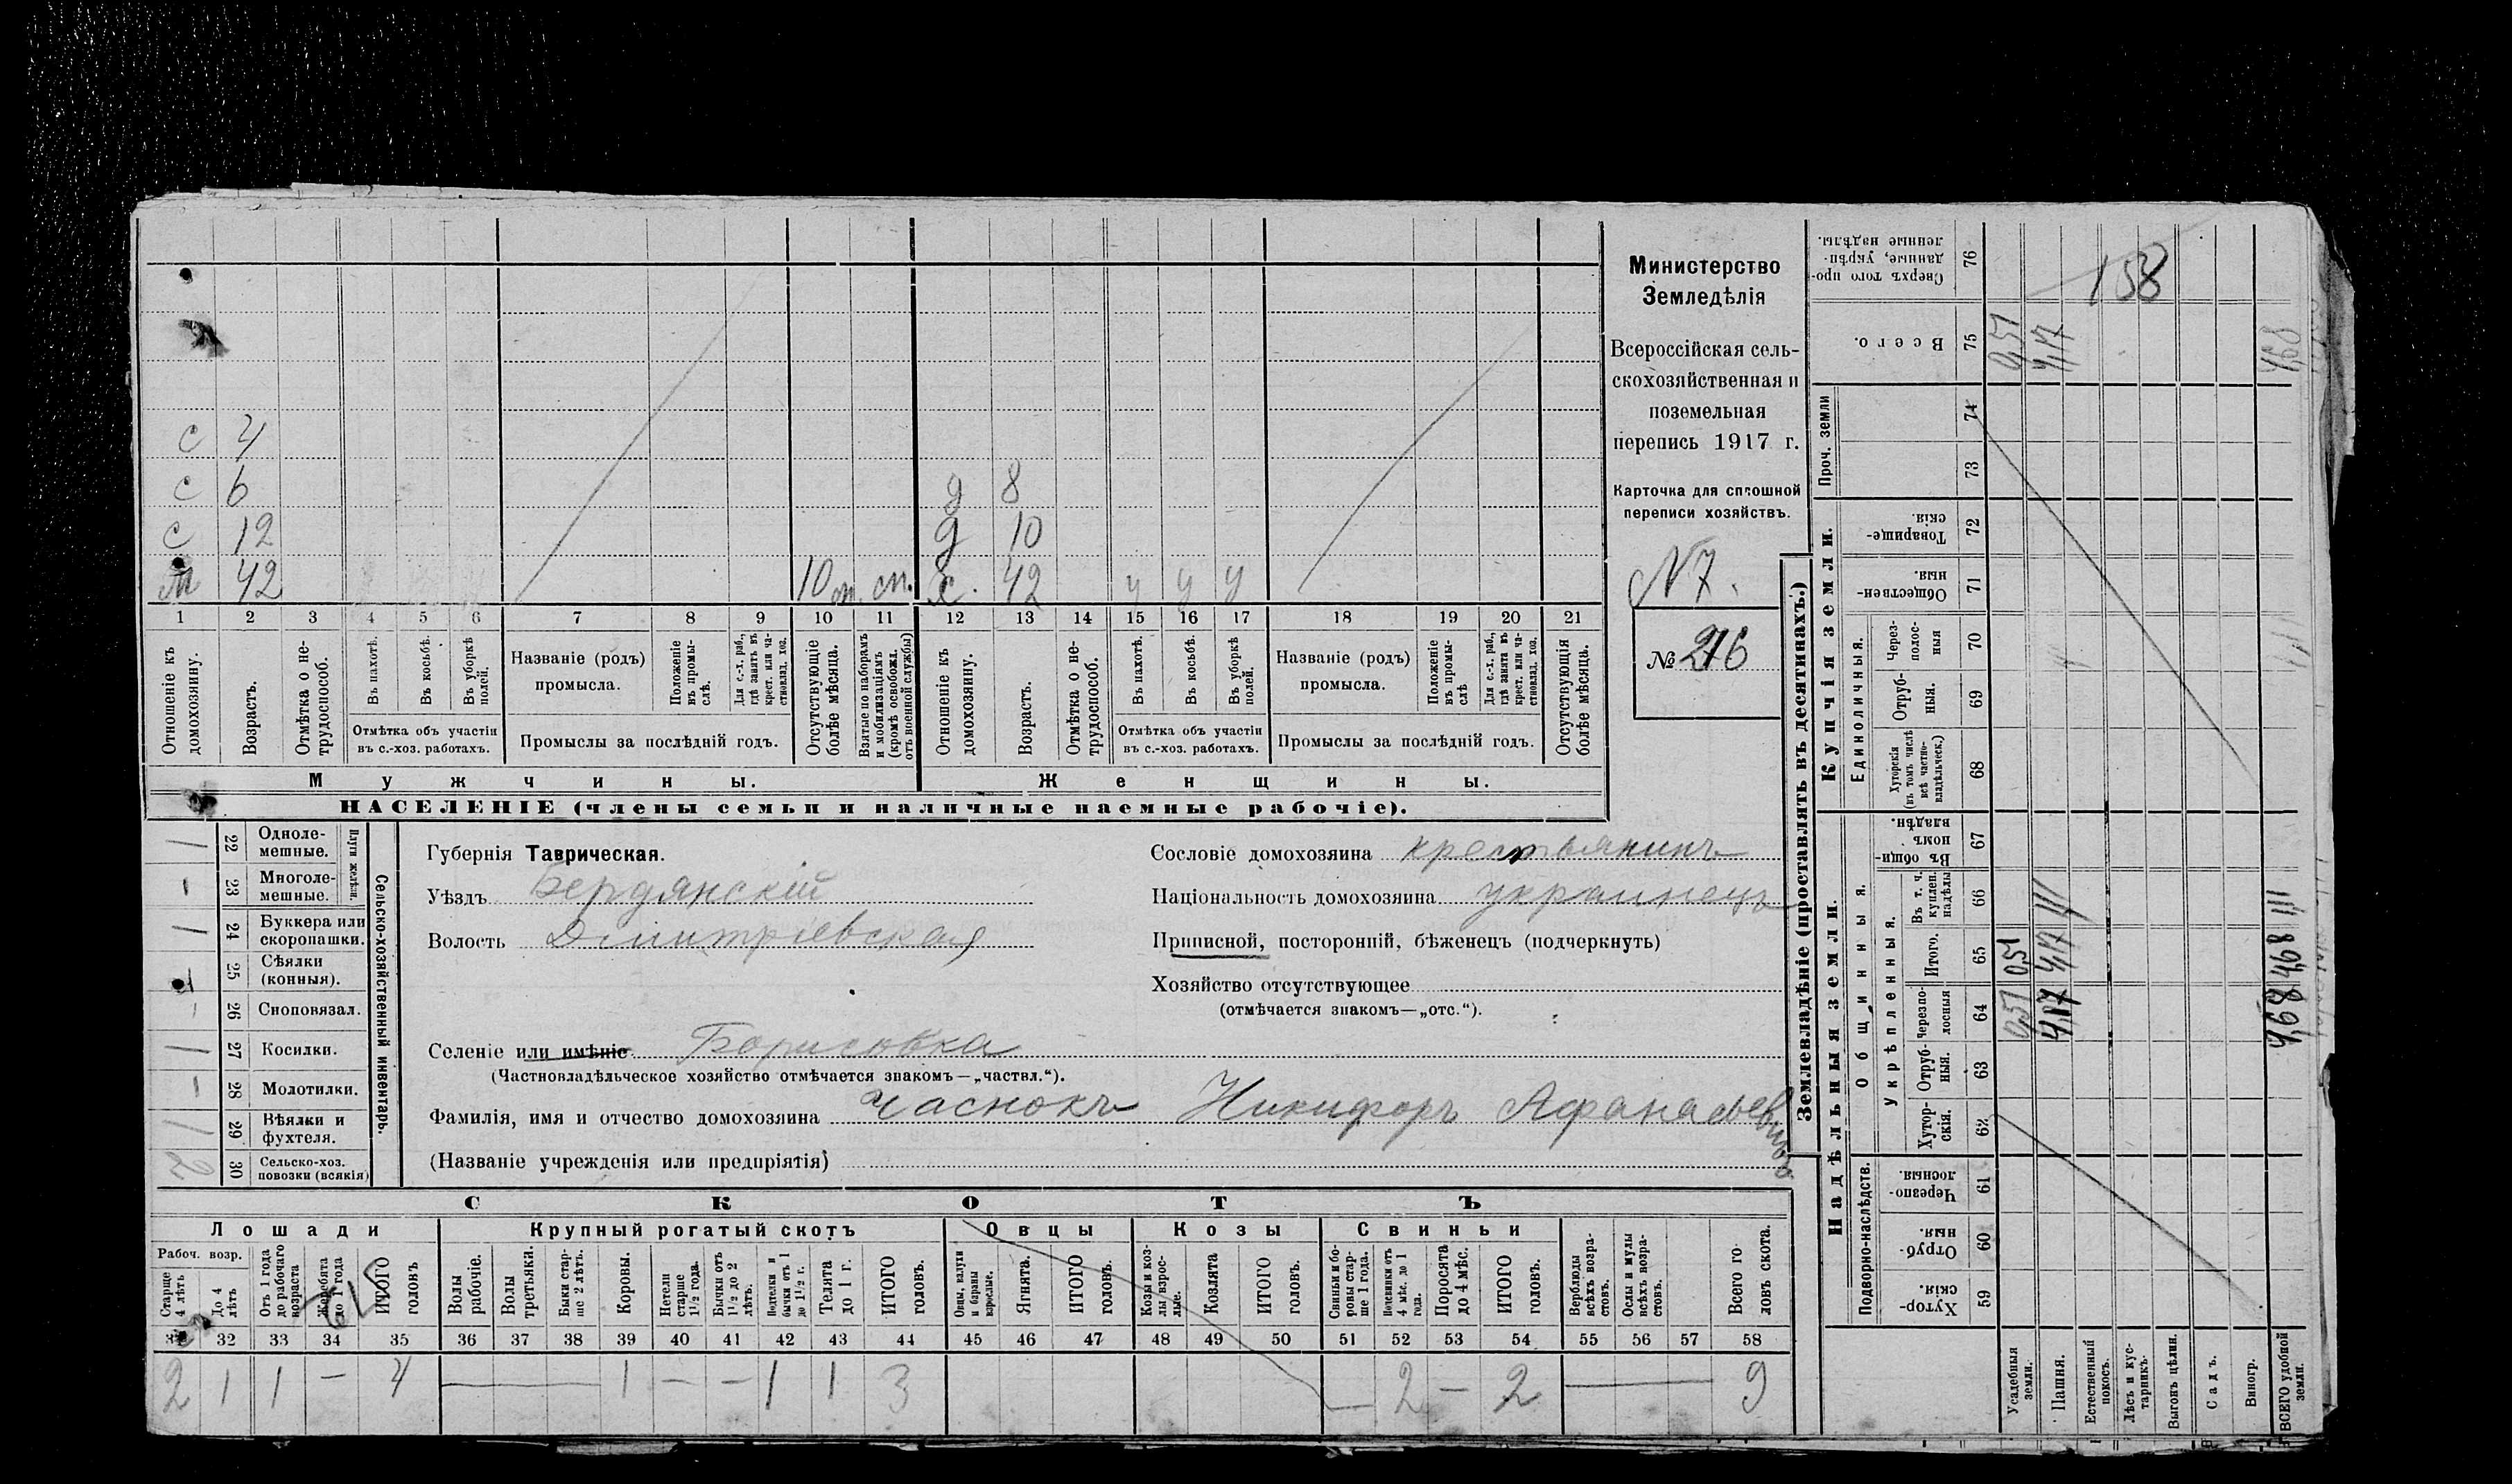 с 4
с 6
с 12
м 42 10 м. сп.
д 8
д 10
ж. 42 у у у
1 2 3 4 5 6 7 8 9 10 11 12 13 14 15 16 17 18 19 20 21
Отношеніе къ домохозяину.
Возрастъ.
Отмѣтка о нетрудоспособ.
Въ пахотѣ.
Въ косьбѣ.
Въ уборкѣ полей.
Отмѣтка объ участіи
въ с.-хоз. работахъ.
Названіе (родъ)
промысла.
Положеніе въ промыслѣ.
Для с.-х. раб., гдѣ занятъ въ крест. или частновлад. хоз.
Промыслы за послѣдній годъ.
Отсутствующіе болѣе мѣсяца.
Взятые по наборамъ и мобилизаціямъ (кромѣ освобожд. отъ военной службы)
Отношеніе къ домохозяину.
Возрастъ.
Отмѣтка о нетрудоспособ.
Въ пахотѣ.
Въ косьбѣ.
Въ уборкѣ полей.
Отмѣтка объ участіи
въ с.-хоз. работахъ.
Названіе (родъ)
промысла.
Положеніе въ промыслѣ
Для с.-х. раб., гдѣ занята въ крест. или частновлад. хоз.
Промыслы за послѣдній годъ.
Отсутствующія болѣе мѣсяца.
Мужчины.
Женщины.
НАСЕЛЕНІЕ (члены семьи и наличные наемные рабочіе).
Министерство
Земледѣлія
Всероссійская сель-
скохозяйственная и
поземельная
перепись 1917 г.
Карточка для сплошной
переписи хозяйствъ.
N 7.
№ 216
Сельско-хозяйственный инвентарь.
Плуги желѣзн.
1 22 Одноле-
мешные.
23 Многоле-
мешные.
1 24 Буккера или
скоропашки.
25 Сѣялки
(конныя).
26 Сноповязал.
1 27 Косилки.
28 Молотилки.
1 29 Вѣялки и
фухтеля.
2 30 Сельско-хоз.
повозки (всякія)
Губернія Таврическая.
Уѣздъ Бердянскій
Волость Дмитріевская
Селеніе или имѣніе Борисовка
(Частновладѣльческое хозяйство отмѣчается знакомъ—„частвл.“).
Фамилія, имя и отчество домохозяина Часнокъ Никифоръ Афанасьевичъ
(Названіе учрежденія или предпріятія)
Сословіе домохозяина крестьянинъ
Національность домохозяина украинецъ
Приписной, посторонній, бѣженецъ (подчеркнуть)
Хозяйство отсутствующее
(отмѣчается знакомъ—„отс.“).
СКОТЪ
Лошади
Крупный рогатый скотъ
Овцы
Козы
Свиньи
Рабоч. возр.
Старше 4 лѣтъ
До 4 лѣтъ
Отъ 1 года до рабочаго возраста
Жеребята до 1 года
ИТОГО головъ
Волы рабочіе.
Волы третьяки.
Быки старше 2 лѣтъ.
Коровы.
Нетели старше 1½ года.
Бычки отъ 1½ до 2 лѣтъ.
Подтелки и бычки отъ 1 до 1½ г.
Телята до 1 г.
ИТОГО головъ.
Овцы, валухи и бараны взрослые.
Ягнята.
ИТОГО головъ.
Козы и козлы взрослые.
Козлята
ИТОГО головъ.
Свиньи и боровы старше 1 года.
Подсвинки отъ 4 мѣс. до 1 года.
Поросята до 4 мѣс.
ИТОГО головъ.
Верблюды всѣхъ возрастовъ.
Ослы и мулы всѣхъ возрастовъ.
Всего головъ скота.
32 33 34 35 36 37 38 39 40 41 42 43 44 45 46 47 48 49 50 51 52 53 54 55 56 57 58
2 1 1 — 4 — 1 — — 1 1 3 — 2 — 2 — 9
Землевладѣніе (проставлять въ десятинахъ.)
Купчія земли.
Надѣльныя земли.
Сверхъ того проданные, укрѣпленные надѣлы. 76
158
Всего. 75 0,51 4,17 4,68
Проч. земли
74
73
Товарищескія. 72
Общественныя. 71
Единоличныя.
Черезполосныя 70
Отрубныя. 69
Хуторскія (въ томъ числѣ всѣ частновладѣльческ.) 68
Общинныя.
Въ общинномъ владѣн. 67
Укрѣпленныя.
Въ т. ч. куплен. надѣлы 66
Итого. 65 0,51 4,17 4,68
Черезполосныя 64 0,51 4,17 4,68
Отрубныя. 63
Хуторскія. 62
Подворно-наслѣдств.
Черезполосныя 61
Отрубныя. 60
Хуторскія. 59
Усадебныя земли.
Пашня.
Естественный покосъ.
Лѣсъ и кустарникъ.
Выгонъ цѣлин.
Садъ.
Виногр.
ВСЕГО удобной земли.